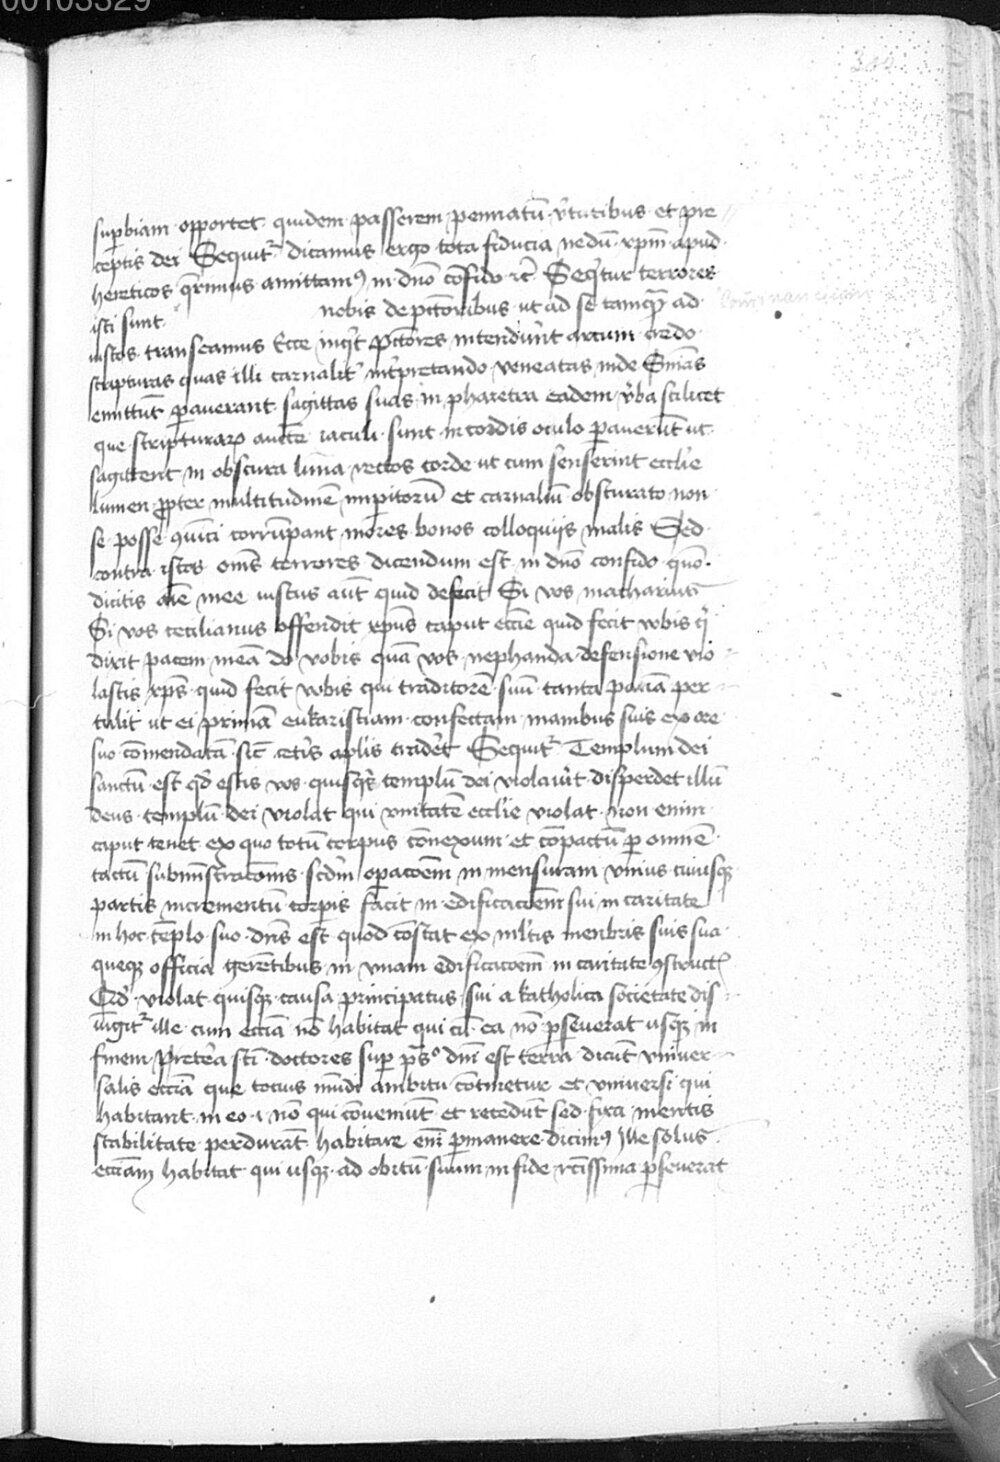 00103329
sup̱biam opportet quidem passerem pennatū v̓tutibus et pre
ceptis dei Sequit᷑ dicamus ergo tota fiducia nedū xp̄m apud
hereticos q̄rimus amittam⁹ in dn̄o cōfido ⁊c̄ Sequ̓tur terrores
isti sunt nobis de pc̄toribus ut ad se tamqꝫ ad
iustos transeamus Ecce inq̓t pc̄tores intendūnt arcum credo
scripturas quas illi carnalit̓ int̓pretando venenatas inde s̄nias
emittūt p̱auerant sagittas suas in pharetra eadem v̓ba scilicet
que scripturaꝝ auctē iaculi sunt in cordis oculo p̱auerūt ut
sagittent in obscura luna rectos corde ut cum senserint eccl̓ie
lumen pp̱ter multitudinē inp̱itorū et carnaliū obscurato non
se posse ꝯuīci corrūpant mores bonos colloquijs malis Sed
contra istos om̄s terrores dicendum est in dn̄o confido quō
dicitis aīe mee iustus aūt quid defecit Si vos macharius
Si vos cecilianus offendit xp̄us caput ecc̄ie quid fecit vobis qi
dixit pacem meā do vobis quā vos nephanda defensione vio
lastis xp̄s quid fecit vobis qui traditorē suū tanta paciā per
tulit ut ei primā eukaristiam confectam manibus suis exo ore
suo cōmendatā sic̄ cet̓is ap̄lis trad̓et Sequit᷑ Templum dei
sanctū est qd̓ estis vos quisq̓s templū dei violau̓it disperdet illū
deus templū dei violat qui vnitatē eccl̓ie violat non enim
caput tenet exo quo totū corpus cōnexoum et cōpactū p̱ omnē
tactū submīstracōnis scd̓m op̱acōem in mensuram vnius cuiusqꝫ
partis incrementū corp̱is facit in edificacōem sui in caritate
in hoc tēplo suo dn̄s est quod cōstat exo ml̓tis menbris suis sua
queqꝫ officia gerētibus in vnam edificacōem in caritate ꝯstructꝭ
Qd̓ violat quisqꝫ causa principatus sui a katholica societate dis
iūgit᷑ ille cum ecc̄ia nō habitat qui cū ea nō p̱seuerat usqꝫ in
finem Pret̓ea sc̄ti doctores sup̱ p̄s° dn̄i est terra dicūt vniuer
salis ecc̄ia que tocius mūdi ambitu cōtinetur et vniuersi qui
habitant in eo ·i· nō qui cōueniūt et recedūt sed fixa mentis
stabilitate perdurāt habitare enī p̱manere dicim⁹ ille solus
ecc̄iam habitat qui usqꝫ ad obitū suum in fide rc̄issima p̱seuerat